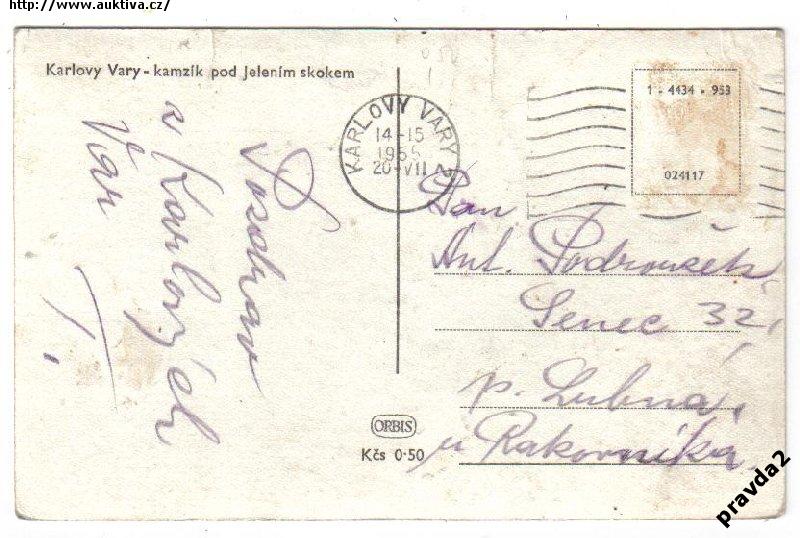 http://www.auktiva.cz/
Karlovy Vary - kamzík pod Jelením skokem
Pozdrav
z Karlových
Var
T.
KARLOVY VARY 2
14-15
1955
20·VII
1 · 4434 · 953
024117
Pan
Ant. Podroužek
Senec 32,
p. Lubná,
u Rakovníka
ORBIS
Kčs 0·50
pravda2